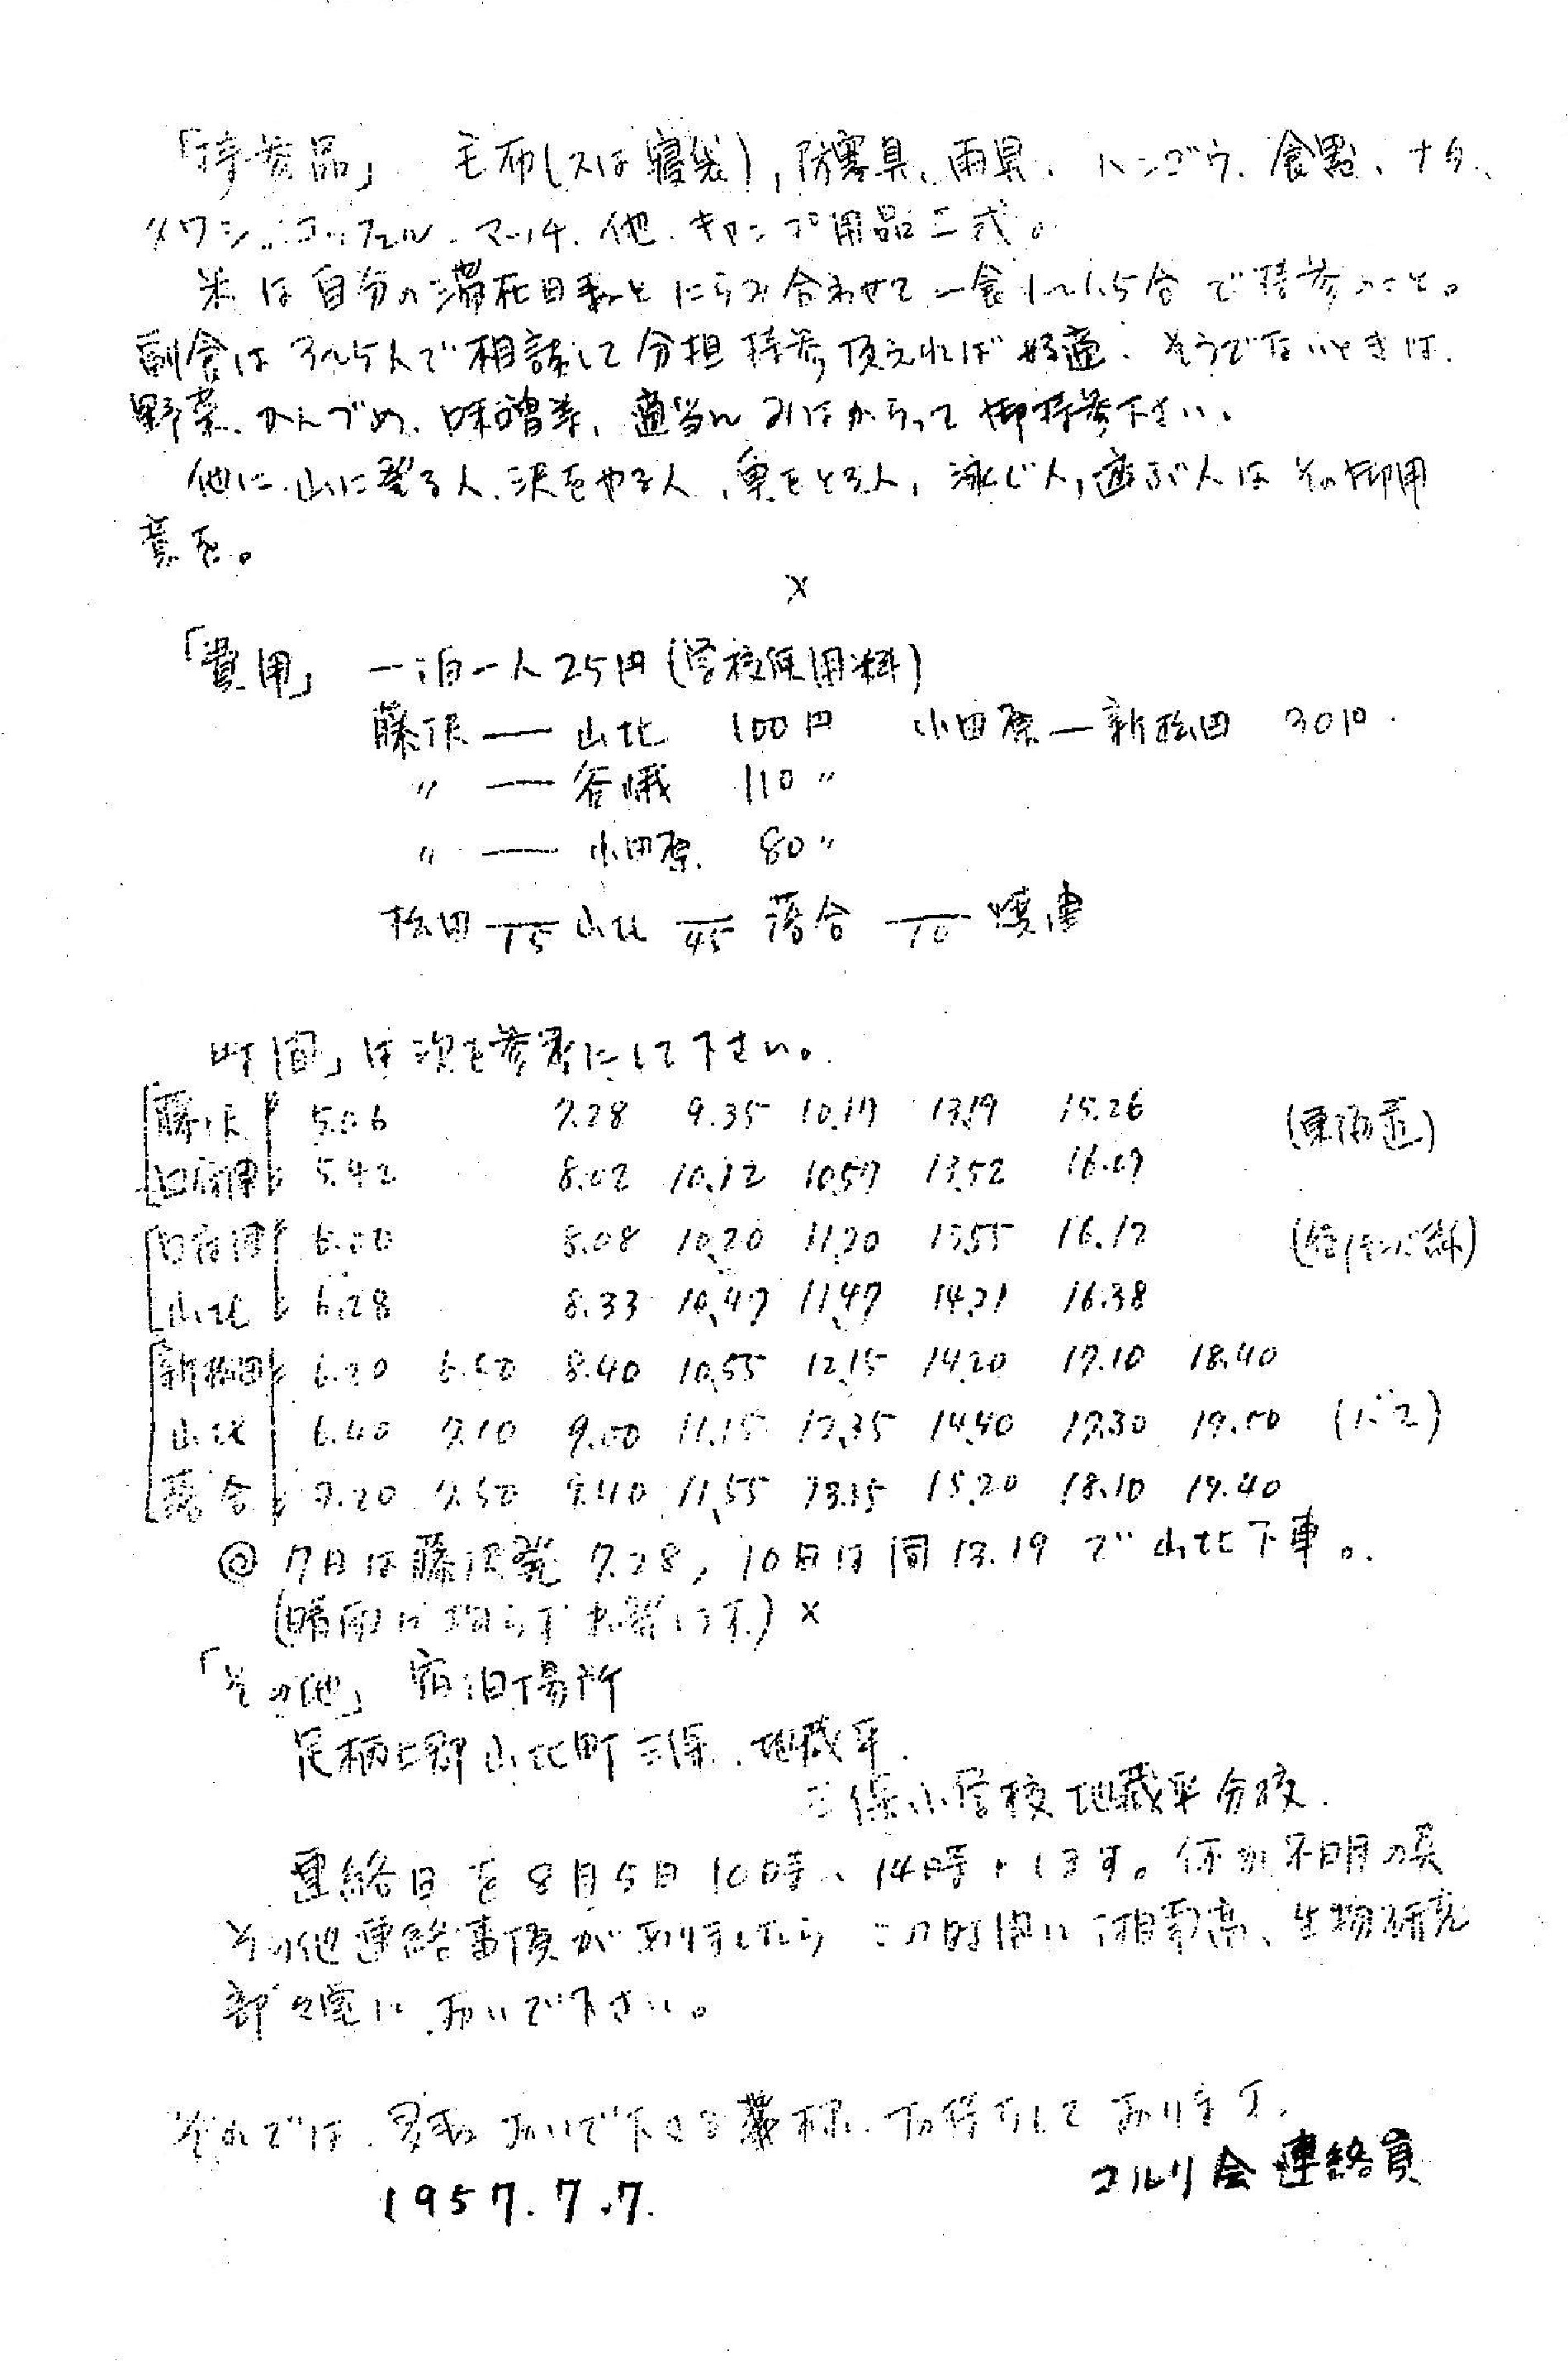 「持参品」 毛布(又は寝袋), 防寒具、雨具、ハンゴウ、食器、ナタ、
タワシ、コッフェル、マッチ、他、キャンプ用品一式。
米は自分の滞在日数とにらみ合わせて一食1〜1.5合で持参のこと。
副食は3〜5人で相談して分担持参頂えれば好適、そうでないときは、
野菜、かんづめ、味噌等、適当にみはからって御持参下さい。
他に、山に登る人、沢をやる人、魚をとる人, 泳ぐ人, 遊ぶ人はその御用
意を。
×
「費用」 一泊一人25円(学校使用料)
藤沢 ― 山北 100円 小田原 ― 新松田 30円.
〃 ― 谷峨 110〃
〃 ― 小田原 80〃
松田 ― 15 山北 ― 45 落合 ― 10 焼津
時間」は次を参考にして下さい。
藤沢 5.06 7.28 9.35 10.17 13.19 15.26 (東海道)
国府津 5.42 8.02 10.12 10.57 13.52 16.07
国府津 6.00 8.08 10.20 11.20 13.55 16.12
山北 6.28 8.33 10.47 11.47 14.21 16.38
新松田 6.20 6.50 8.40 10.55 12.15 14.20 17.10 18.40
山北 6.40 7.10 9.00 11.15 12.35 14.40 17.30 19.00 (バス)
落合 7.20 7.50 9.40 11.55 13.15 15.20 18.10 19.40
◎ 7日は藤沢発 7.28, 10日は同 13.19 で山北下車。
(晴雨に拘らず決行します) ×
「その他」 宿泊場所
足柄上郡山北町三保、地蔵平
三保小学校地蔵平分校.
連絡日を8月5日10時〜14時とします。何か不明の点
その他連絡事項がありましたらこの時間に湘南高、生物研究
部々室に、おいで下さい。
それでは、多数おいで下さる様お待ちしております。
1957.7.7. コルリ会連絡員